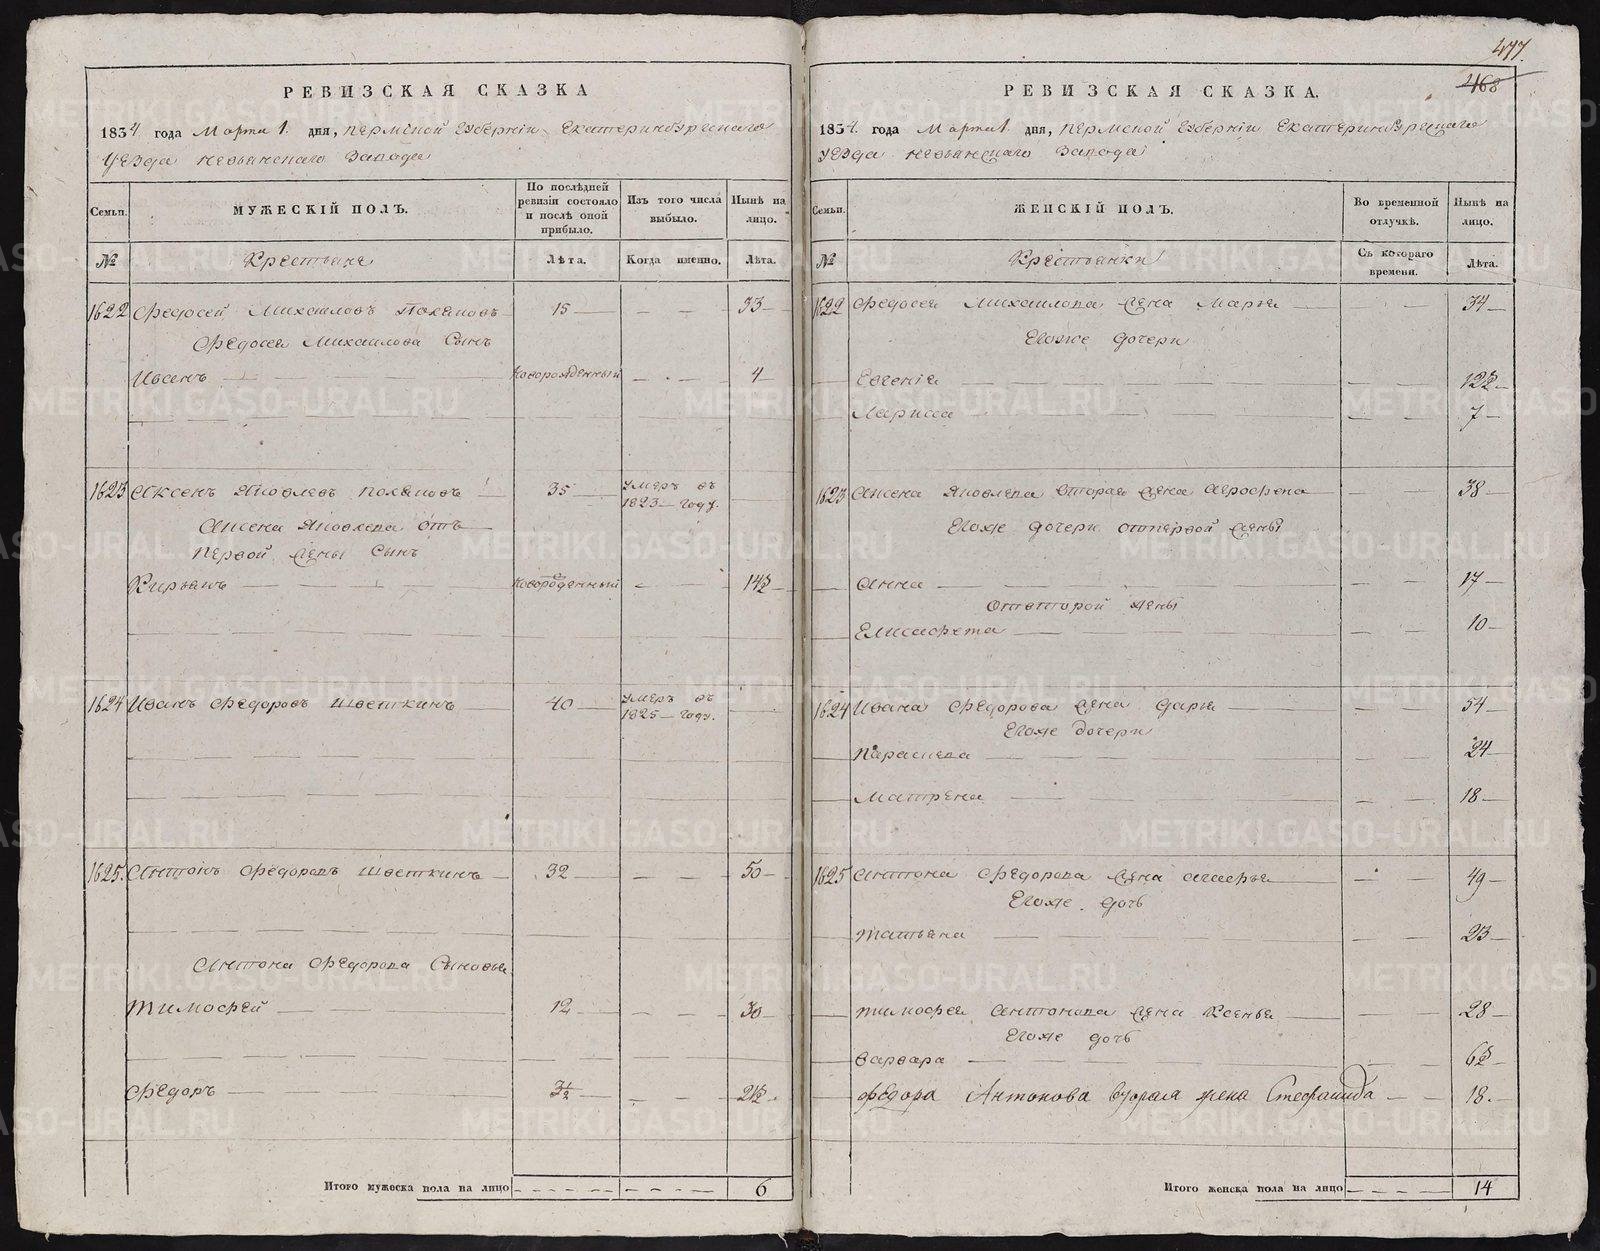 РЕВИЗСКАЯ СКАЗКА
1834. года Марта 1. дня, Пермской Губернии Екатеринбургскаго
Уезда Невьянскаго Завода
Семьи.
МУЖЕСКІЙ ПОЛЪ.
По послѣдней ревизіи состояло и послѣ оной прибыло.
Изъ того числа выбыло.
Нынѣ на лицо.
№
Крестьяне
Лѣта.
Когда именно.
Лѣта.
1622 Федосей Михаиловъ Поляковъ 15 — — 33
Федосея Михаилова Сынъ
Иванъ новорожденный — — 4
1623 Аксенъ Яковлевъ Поляковъ 35 умеръ въ
1823 году.
Аксена Яковлева отъ
первой жены Сынъ
Кирьянъ новорожденный — 14½
1624 Иванъ Федоровъ Шветкинъ 40 умеръ въ
1825 году.
1625. Антонъ Федоровъ Шветкинъ 32 — — 50
Антона Федорова Сыновья
Тимофей 12 — — 30
Федоръ 3½ — — 21½
Итого мужеска пола на лицо 6
477.
468
РЕВИЗСКАЯ СКАЗКА.
1834. года Марта 1. дня, Пермской Губернии Екатеринбургскаго
Уезда Невьянскаго Завода
Семьи.
ЖЕНСКІЙ ПОЛЪ.
Во временной отлучкѣ.
Нынѣ на лицо.
№
Крестьянки
Съ котораго времени.
Лѣта.
1622 Федосея Михаилова жена Марья — — 34
Егоже дочери
Евгенія — — 12½
Лариса — — 7
1623 Аксена Яковлева вторая жена Агрофена — — 38
Егоже дочери отъ первой жены
Анна — — 17
От второй жены
Елисафета — — 10
1624 Ивана Федорова жена Дарья — — 54
Егоже дочери
Параскева — — 24
Матрена — — 18
1625 Антона Федорова жена Агафья — — 49
Егоже дочь
Татьяна — — 23
Тимофея Антонова жена Ксенья — — 28
Егоже дочь
Варвара — — 6½
Федора Антонова вторая жена Стефанида — — 18.
Итого женска пола на лицо 14
METRIKI.GASO-URAL.RU